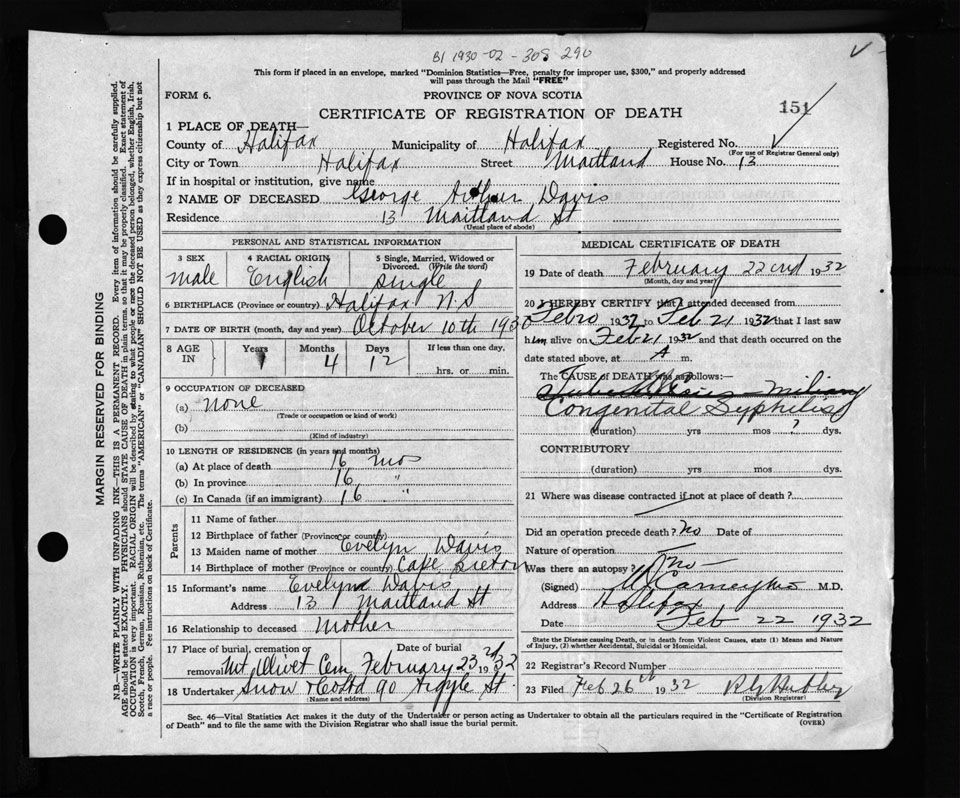 B1 1930-02 - 305 290
This form if placed in an envelope, marked "Dominion Statistics—Free, penalty for improper use, $300," and properly addressed
will pass through the Mail "FREE"
FORM 6.
PROVINCE OF NOVA SCOTIA
151
CERTIFICATE OF REGISTRATION OF DEATH
1 PLACE OF DEATH—
County of Halifax Municipality of Halifax Registered No.
(For use of Registrar General only)
City or Town Halifax Street Maitland House No. 13
If in hospital or institution, give name
2 NAME OF DECEASED George Arthur Davis
Residence 13 Maitland St
(Usual place of abode)
PERSONAL AND STATISTICAL INFORMATION
3 SEX
male
4 RACIAL ORIGIN
English
5 Single, Married, Widowed or
Divorced. (Write the word)
single
6 BIRTHPLACE (Province or country) Halifax N.S
7 DATE OF BIRTH (month, day and year) October 10th 1930
8 AGE IN
Years 1
Months 4
Days 12
If less than one day,
hrs. or min.
9 OCCUPATION OF DECEASED
(a) none
(Trade or occupation or kind of work)
(b)
(Kind of industry)
10 LENGTH OF RESIDENCE (in years and months)
(a) At place of death 16 mos
(b) In province 16 "
(c) In Canada (if an immigrant) 16 "
Parents
11 Name of father
12 Birthplace of father (Province or country)
13 Maiden name of mother Evelyn Davis
14 Birthplace of mother (Province or country) Cape Breton
15 Informant's name Evelyn Davis
Address 13 Maitland St
16 Relationship to deceased mother
17 Place of burial, cremation or removal Date of burial
Mt Olivet Cem February 23rd 1932
18 Undertaker Snow & Co Ltd 90 Argyle St.
(Name and address)
MEDICAL CERTIFICATE OF DEATH
19 Date of death February 22nd 1932
(Month, day and year)
20 I HEREBY CERTIFY that I attended deceased from
1932 to Feb 21 1932 that I last saw
him alive on Feb 21 1932 and that death occurred on the
date stated above, at A m.
The CAUSE OF DEATH was as follows:—
Tuberculosis - miliary
Congenital Syphilis
(duration) yrs mos ? dys.
CONTRIBUTORY
(duration) yrs mos dys.
21 Where was disease contracted if not at place of death?
Did an operation precede death? No Date of
Nature of operation
Was there an autopsy? No
(Signed) M.D.
Address Halifax
Date Feb 22 1932
State the Disease causing Death, or in death from Violent Causes, state (1) Means and Nature
of Injury, (2) whether Accidental, Suicidal or Homicidal.
22 Registrar's Record Number
23 Filed Feb 26th 1932
(Division Registrar)
Sec. 46—Vital Statistics Act makes it the duty of the Undertaker or person acting as Undertaker to obtain all the particulars required in the "Certificate of Registration
of Death" and to file the same with the Division Registrar who shall issue the burial permit.
(OVER)
MARGIN RESERVED FOR BINDING
N.B.—WRITE PLAINLY WITH UNFADING INK—THIS IS A PERMANENT RECORD. Every item of information should be carefully supplied.
AGE should be stated EXACTLY. PHYSICIANS should STATE CAUSE OF DEATH in plain terms, so that it may be properly classified. Exact statement of
OCCUPATION is very important. RACIAL ORIGIN will be described by stating to what people or race the deceased person belonged, whether English, Irish,
Scotch, French, German, Russian, Ruthenian, etc. The terms "AMERICAN" or "CANADIAN" SHOULD NOT BE USED as they express citizenship but not
a race or people. Fee instructions on back of Certificate.